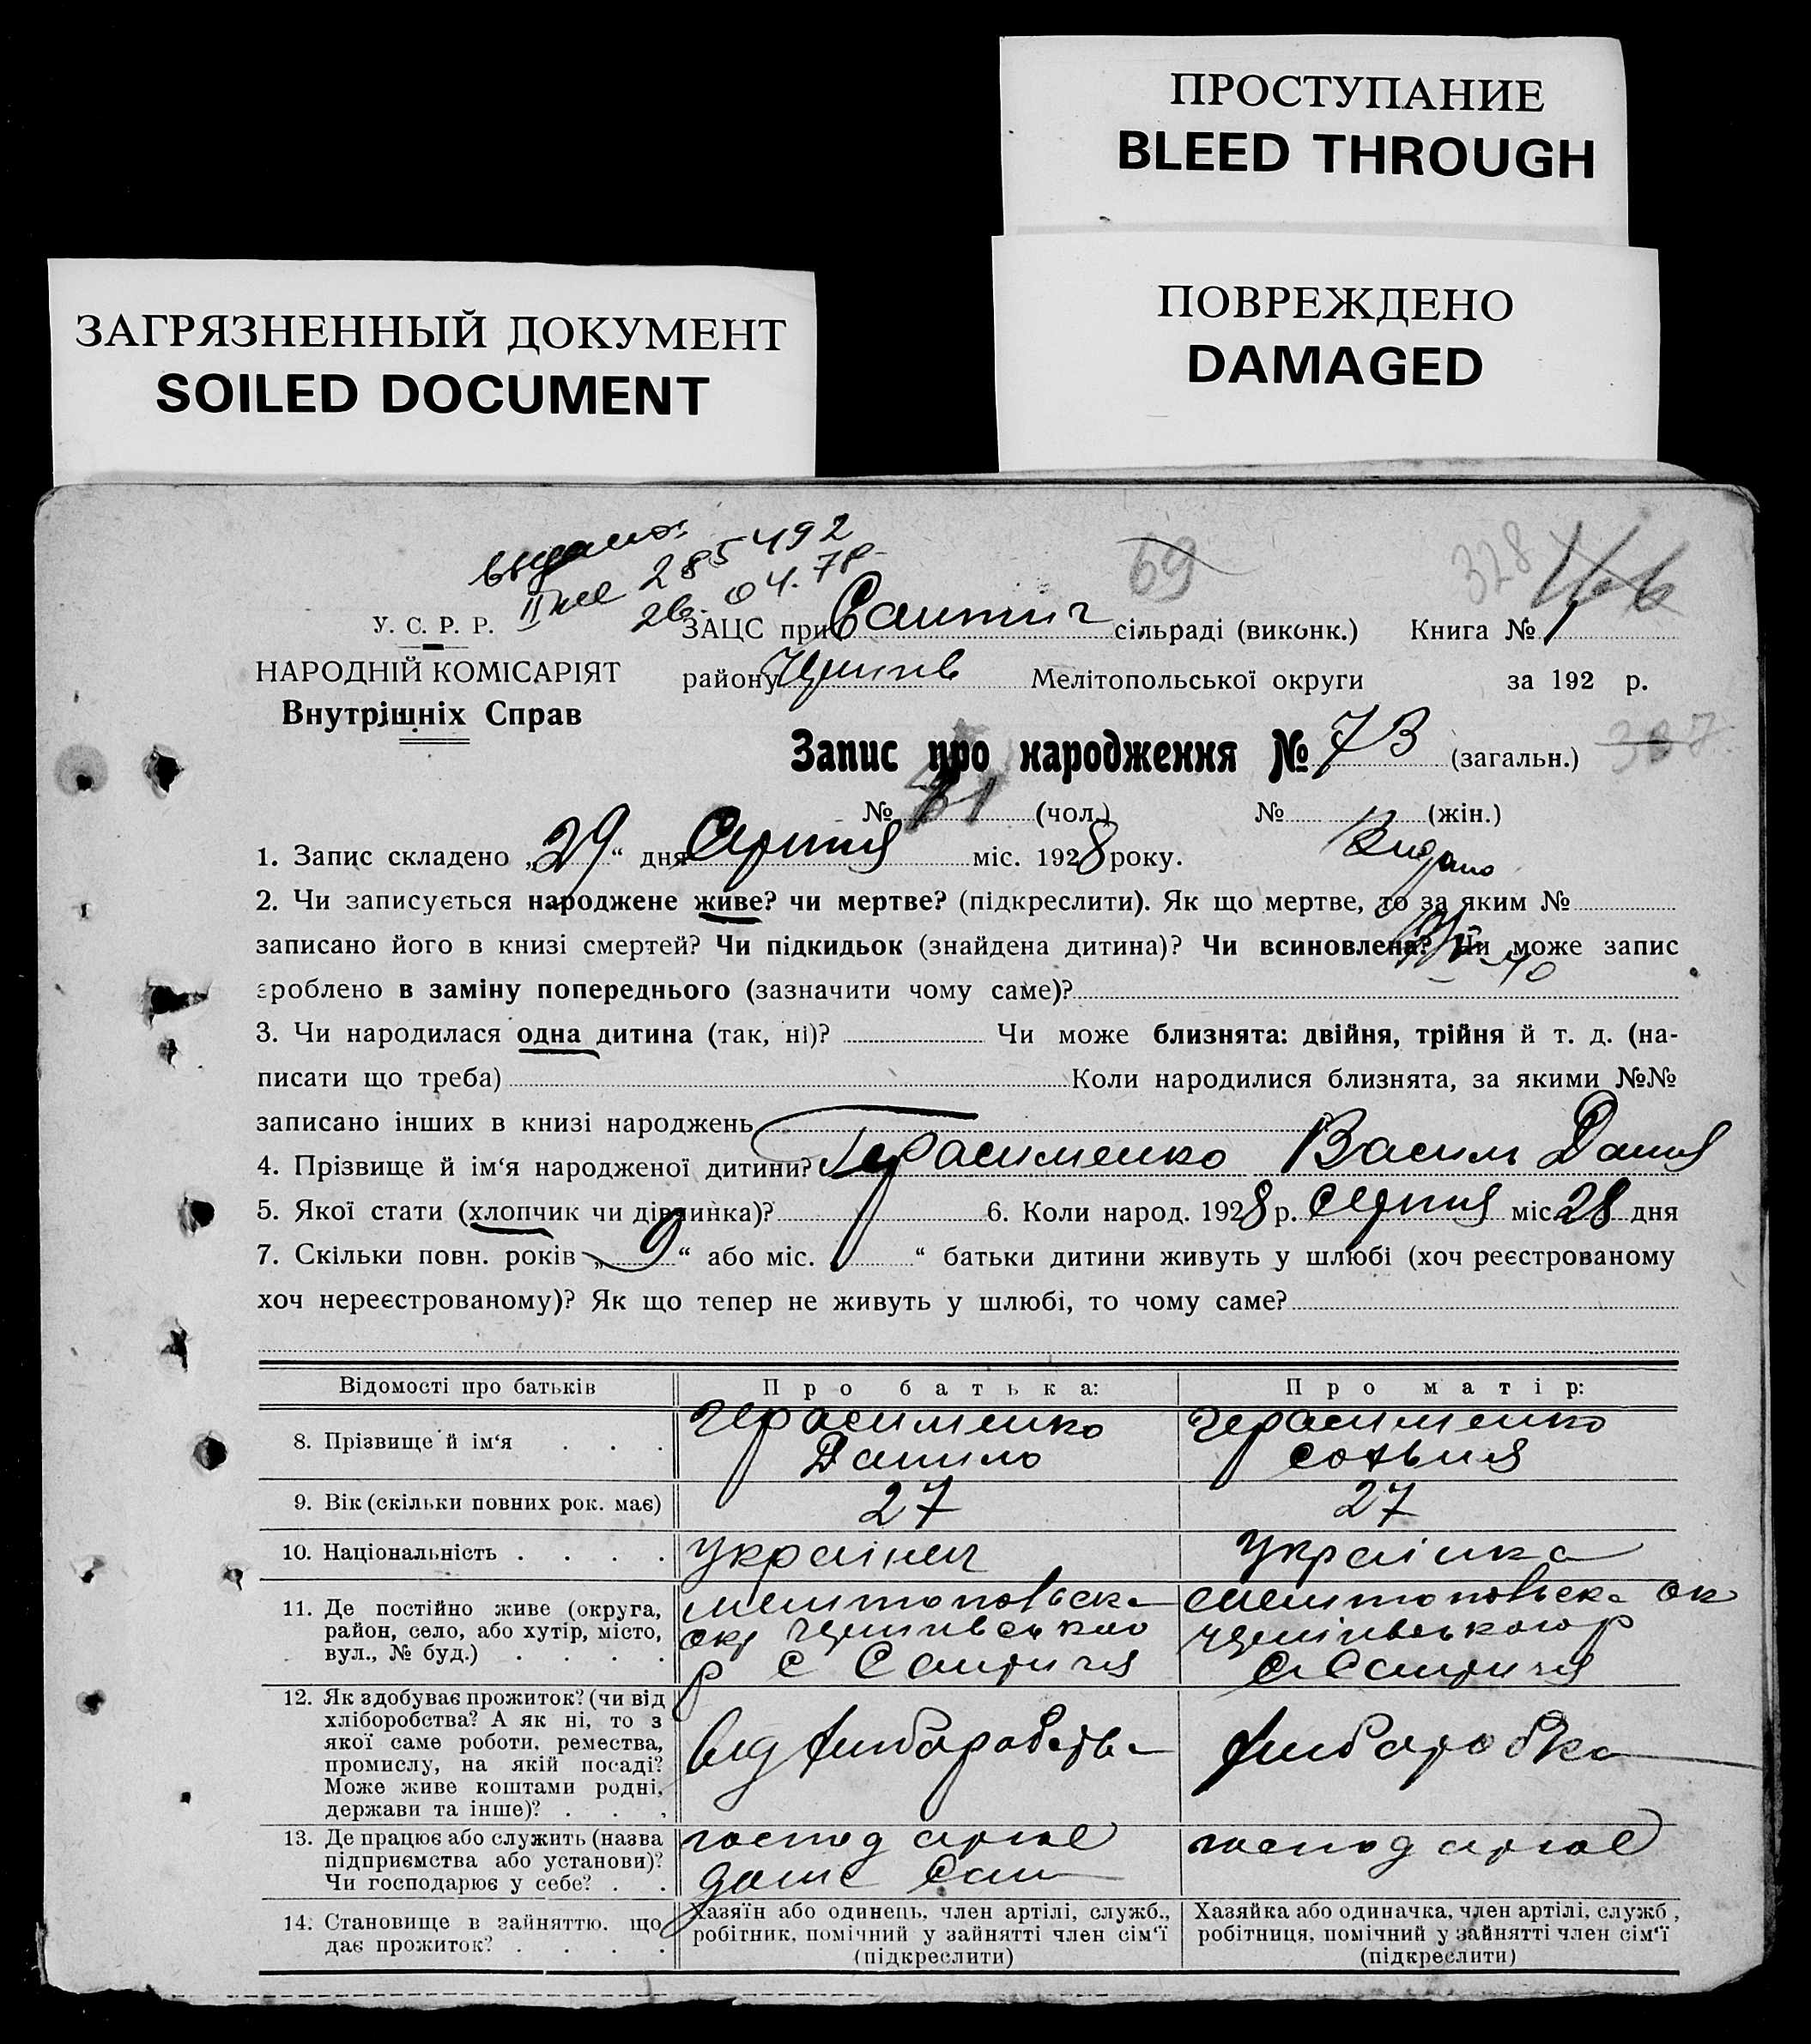 ПРОСТУПАНИЕ
BLEED THROUGH
ЗАГРЯЗНЕННЫЙ ДОКУМЕНТ
SOILED DOCUMENT
ПОВРЕЖДЕНО
DAMAGED
285492
26.04.78
69
328
У. С. Р. Р.
НАРОДНІЙ КОМІСАРІЯТ
Внутрішніх Справ
ЗАЦС при сільраді (виконк.) Книга № 1
району Мелітопольської округи за 192 р.
Запис про народження № 73 (загальн.) 307
№ 41 (чол.) № (жін.)
1. Запис складено „29“ дня Серпня міс. 1928 року.
Видано
2. Чи записується народжене живе? чи мертве? (підкреслити). Як що мертве, то за яким №
записано його в книзі смертей? Чи підкидьок (знайдена дитина)? Чи всиновлена? Чи може запис
зроблено в заміну попереднього (зазначити чому саме)?
3. Чи народилася одна дитина (так, ні)? Чи може близнята: двійня, трійня й т. д. (на-
писати що треба) Коли народилися близнята, за якими №№
записано інших в книзі народжень
4. Прізвище й ім‘я народженої дитини? Герасименко Василь Данил
5. Якої стати (хлопчик чи дівчинка)? 6. Коли народ. 1928 р. Серпня міс. 28 дня
7. Скільки повн. років „9“ або міс. “ батьки дитини живуть у шлюбі (хоч реєстрованому
хоч нереєстрованому)? Як що тепер не живуть у шлюбі, то чому саме?
Відомості про батьків
Про батька:
Про матір:
8. Прізвище й ім‘я . . .
Герасименко
Данило
Герасименко
Софья
9. Вік (скільки повних рок. має)
27
27
10. Національність . . . .
Українец
Українка
11. Де постійно живе (округа,
район, село, або хутір, місто,
вул., № буд.) . . . .
Мелітопольска
окр
р с
Мелітопольска ок
р
с
12. Як здобуває прожиток? (чи від
хліборобства? А як ні, то з
якої саме роботи, ремества,
промислу, на якій посаді?
Може живе коштами родні,
держави та інше)? . . .
від хліборобства
хліборобка
13. Де працює або служить (назва
підприємства або установи)?
Чи господарює у себе? . .
господарює
дома сам
господарює
14. Становище в зайняттю. що
дає прожиток? . . . .
Хазяїн або одинець, член артілі, служб.,
робітник, помічний у зайнятті член сім‘ї
(підкреслити)
Хазяйка або одиначка, член артілі, служб ,
робітниця, помічний у зайнятті член сім‘ї
(підкреслити)